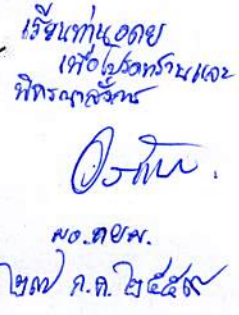 เรียนท่าน อดย
เพื่อโปรดทราบและ
พิจารณาสั่งการ
ผอ.กยผ.
๒๗ ก.ค. ๒๕๕๙